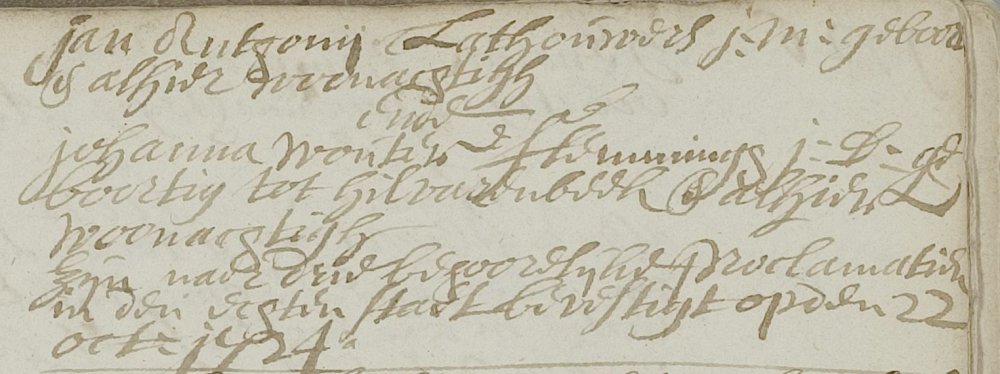 jan Rutgonij Lathouwers j: m: geboor
& alhier woonagtigh
ende
johanna Wouters Flemmings j: d: ge
boortig tot hilvarenbeek & alhier
woonagtigh
zijn naer drie behoorelijke proclamatien
in den egten staet bevestigt op den 22
octe: 1724